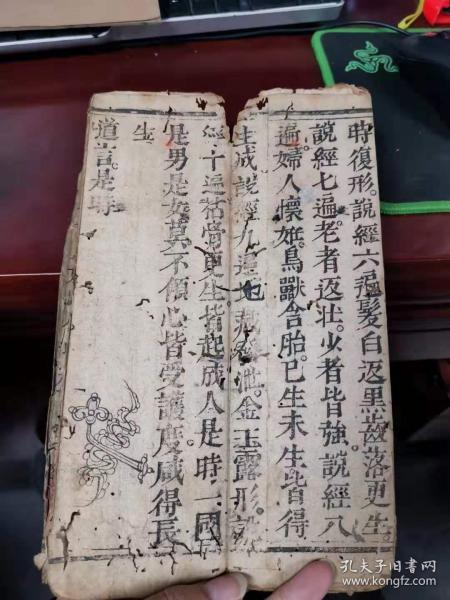 時復形。說經六遍髮白返黑齒落更生。
說經七遍。老者返壯。少者皆強。說經八
遍。婦人懷妊。鳥獸含胎。已生未生皆得
生成說經九遍地藏發泄。金玉露形。說
經十遍枯骨更生皆起成人是時一國
是男是女莫不傾心皆受護度。咸得長
生
道言。是時
孔夫子旧书网
www.kongfz.com